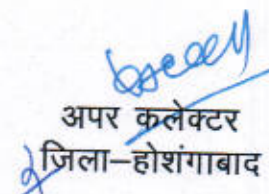 अपर कलेक्टर
जिला–होशंगाबाद